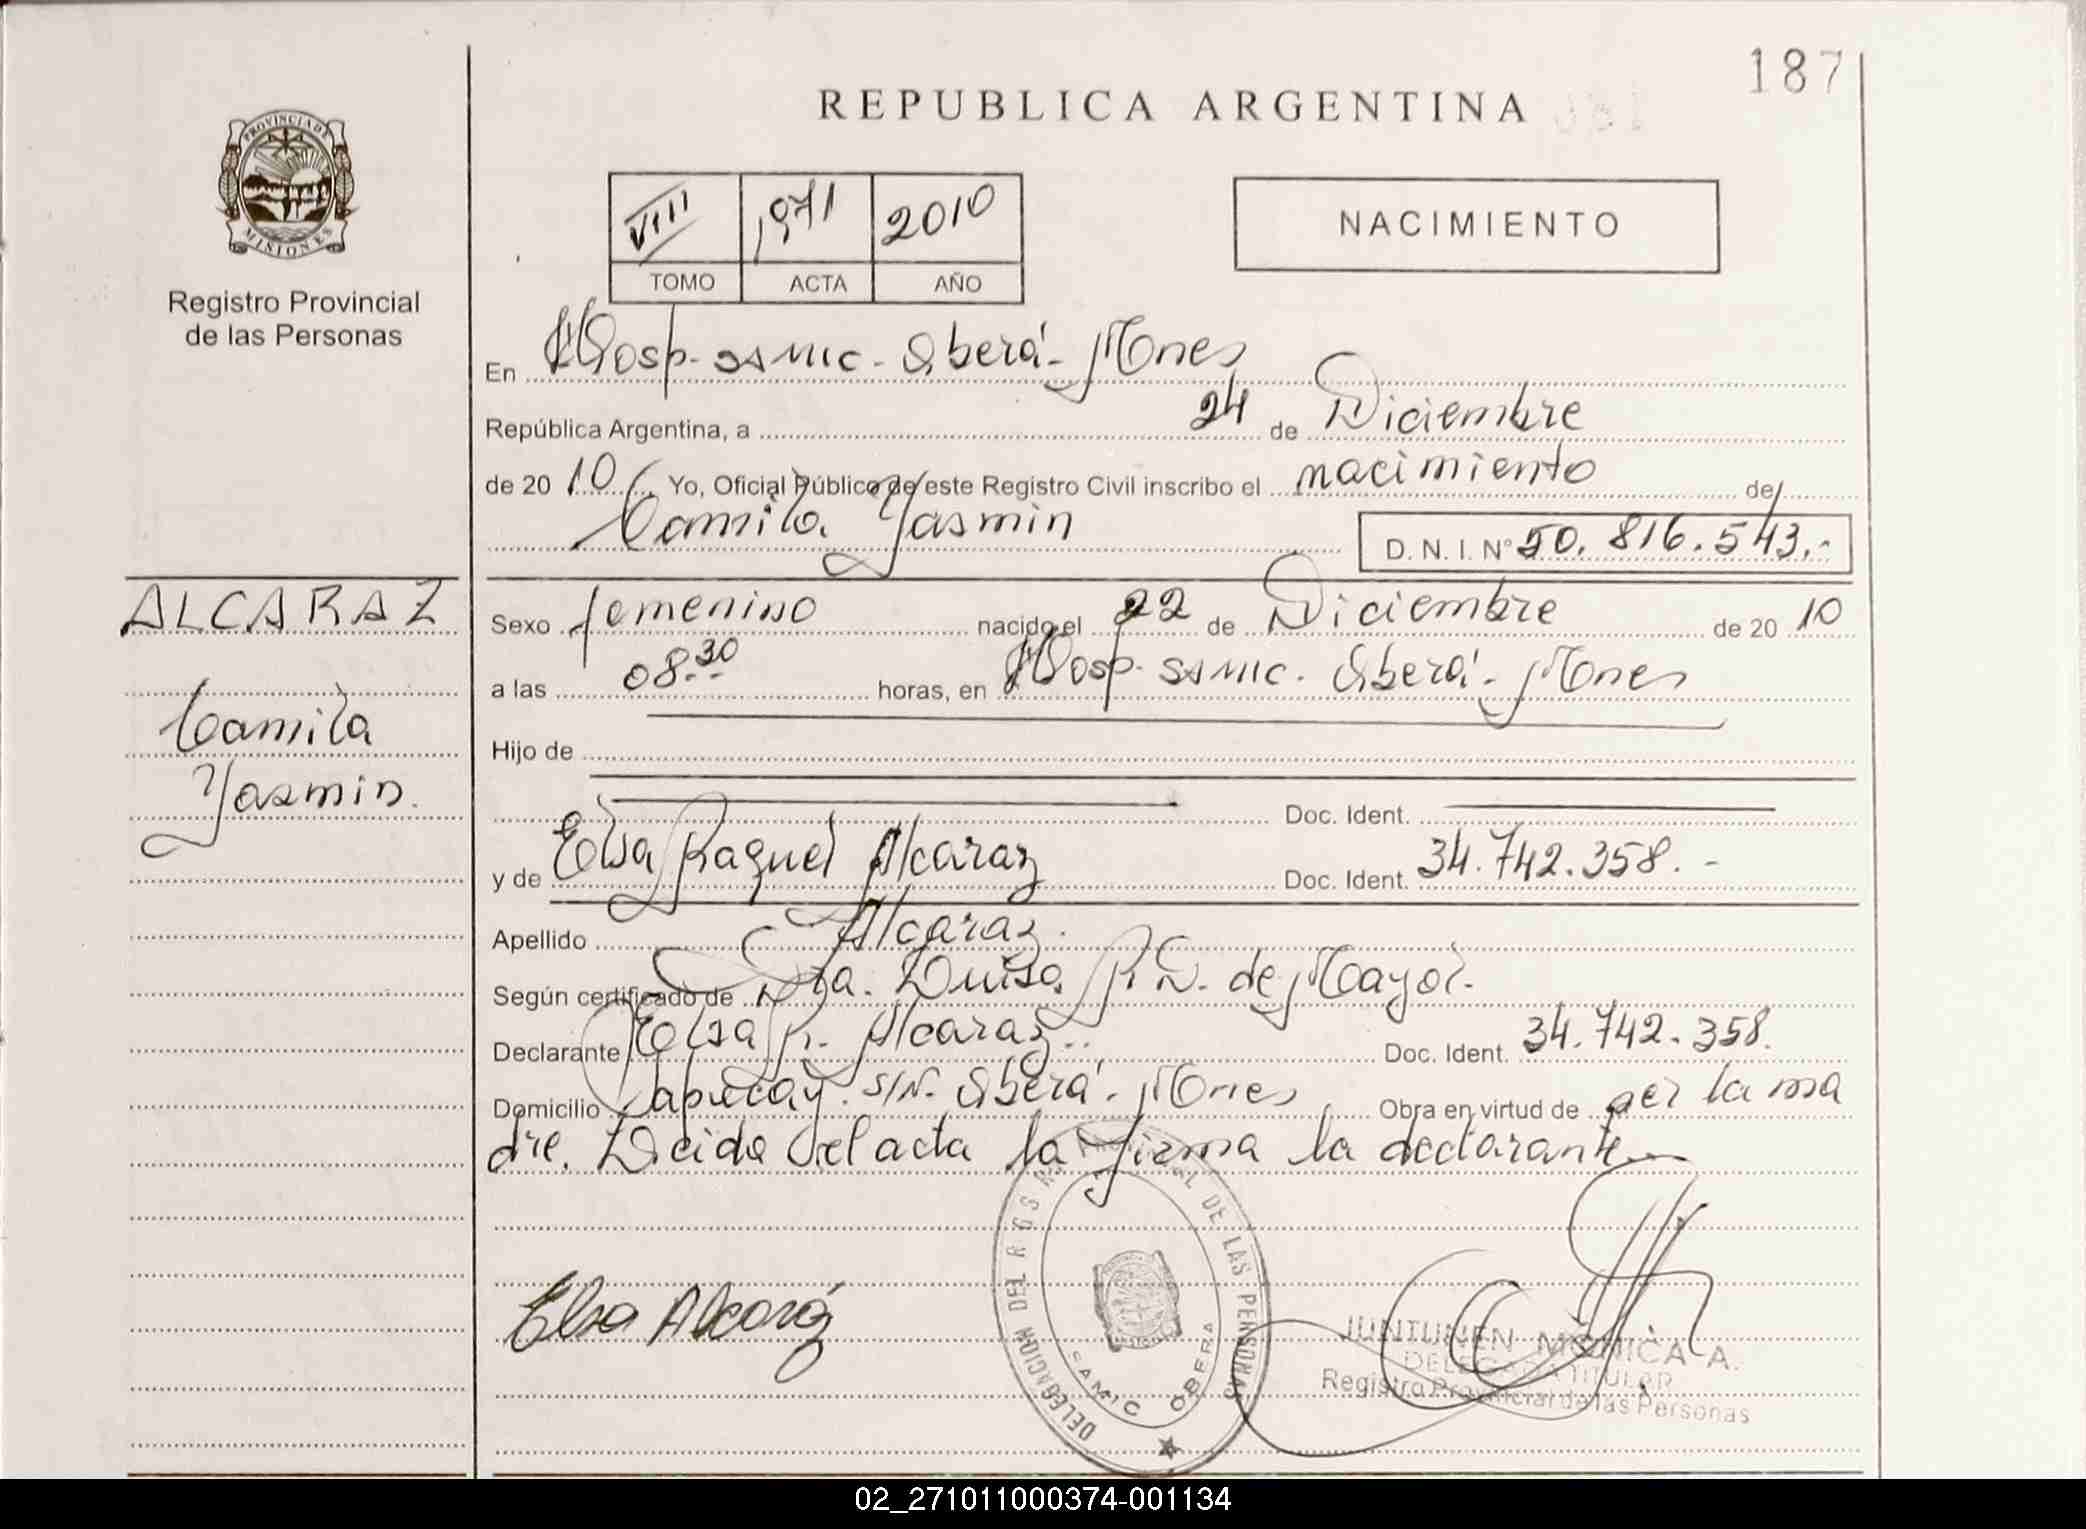 187
REPUBLICA ARGENTINA
PROVINCIA DE
MISIONES
Registro Provincial
de las Personas
VIII 1971 2010
TOMO ACTA AÑO
NACIMIENTO
En Hosp. SAMIC. Oberá - Mnes
República Argentina, a 24 de Diciembre
de 20 10. Yo, Oficial Público de este Registro Civil inscribo el nacimiento de
Camila Yasmin
D. N. I. N° 50.816.543.-
ALCARAZ
Camila
Yasmin.
Sexo femenino nacido el 22 de Diciembre de 20 10
a las 08.30 horas, en Hosp. SAMIC. Oberá - Mnes
Hijo de
Doc. Ident.
y de Elsa Raquel Alcaraz Doc. Ident. 34.742.358.-
Apellido Alcaraz.
Según certificado de Dra. Luisa R. D. de Mayol.
Declarante Elsa R. Alcaraz.. Doc. Ident. 34.742.358.
Domicilio S/N. Oberá - Mnes Obra en virtud de ser la ma
dre. Leida el acta la firma la declarante
Elsa Alcaráz
DELEGACION DEL REGISTRO PROVINCIAL DE LAS PERSONAS
SAMIC OBERA
JUNTUNEN MONICA A.
DELEGADA TITULAR
Registro Provincial de las Personas
02_271011000374-001134